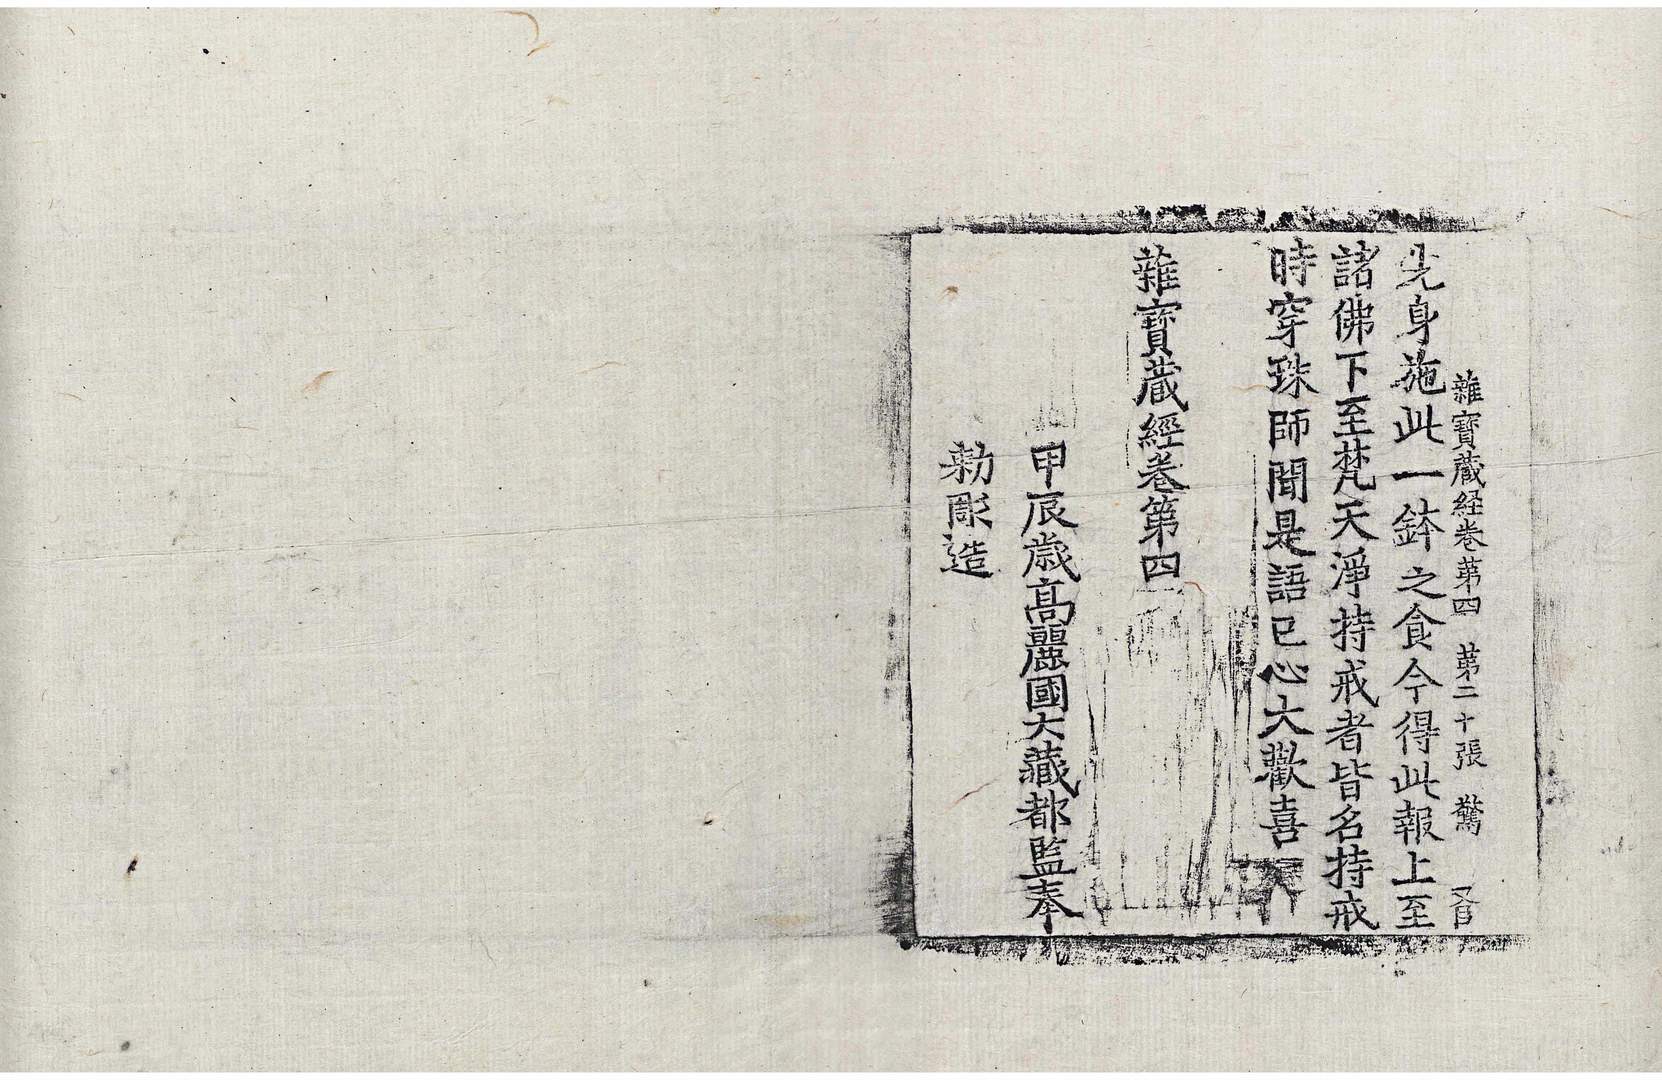 雜寶藏経卷第四 第二十張 驚
先身施此一鉢之食今得此報上至
諸佛下至梵天淨持戒者皆名持戒
時穿珠師聞是語已心大歡喜
雜寶藏經卷第四
甲辰歲高麗國大藏都監奉
勑彫造